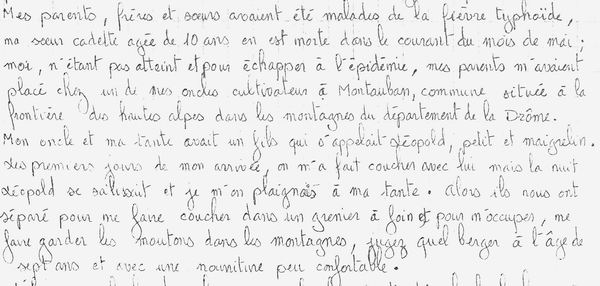 Mes parents, frères et sœurs avaient été malades de la fièvre typhoïde,
ma sœur cadette agée de 10 ans en est morte dans le courant du mois de mai ;
moi, n'étant pas atteint et pour échapper à l'épidémie, mes parents m'avaient
placé chez un de mes oncles cultivateur à Montauban, commune située à la
frontière des hautes alpes dans les montagnes du département de la Drôme.
Mon oncle et ma tante avait un fils qui s'appelait Léopold, petit et maigrelin.
Les premiers jours de mon arrivée, on m'a fait coucher avec lui mais la nuit
Léopold se salissait et je m'en plaignais à ma tante. Alors ils nous ont
séparé pour me faire coucher dans un grenier à foin et pour m'occuper, me
faire garder les moutons dans les montagnes, jugez quel berger à l'âge de
sept ans et avec une nourriture peu confortable.